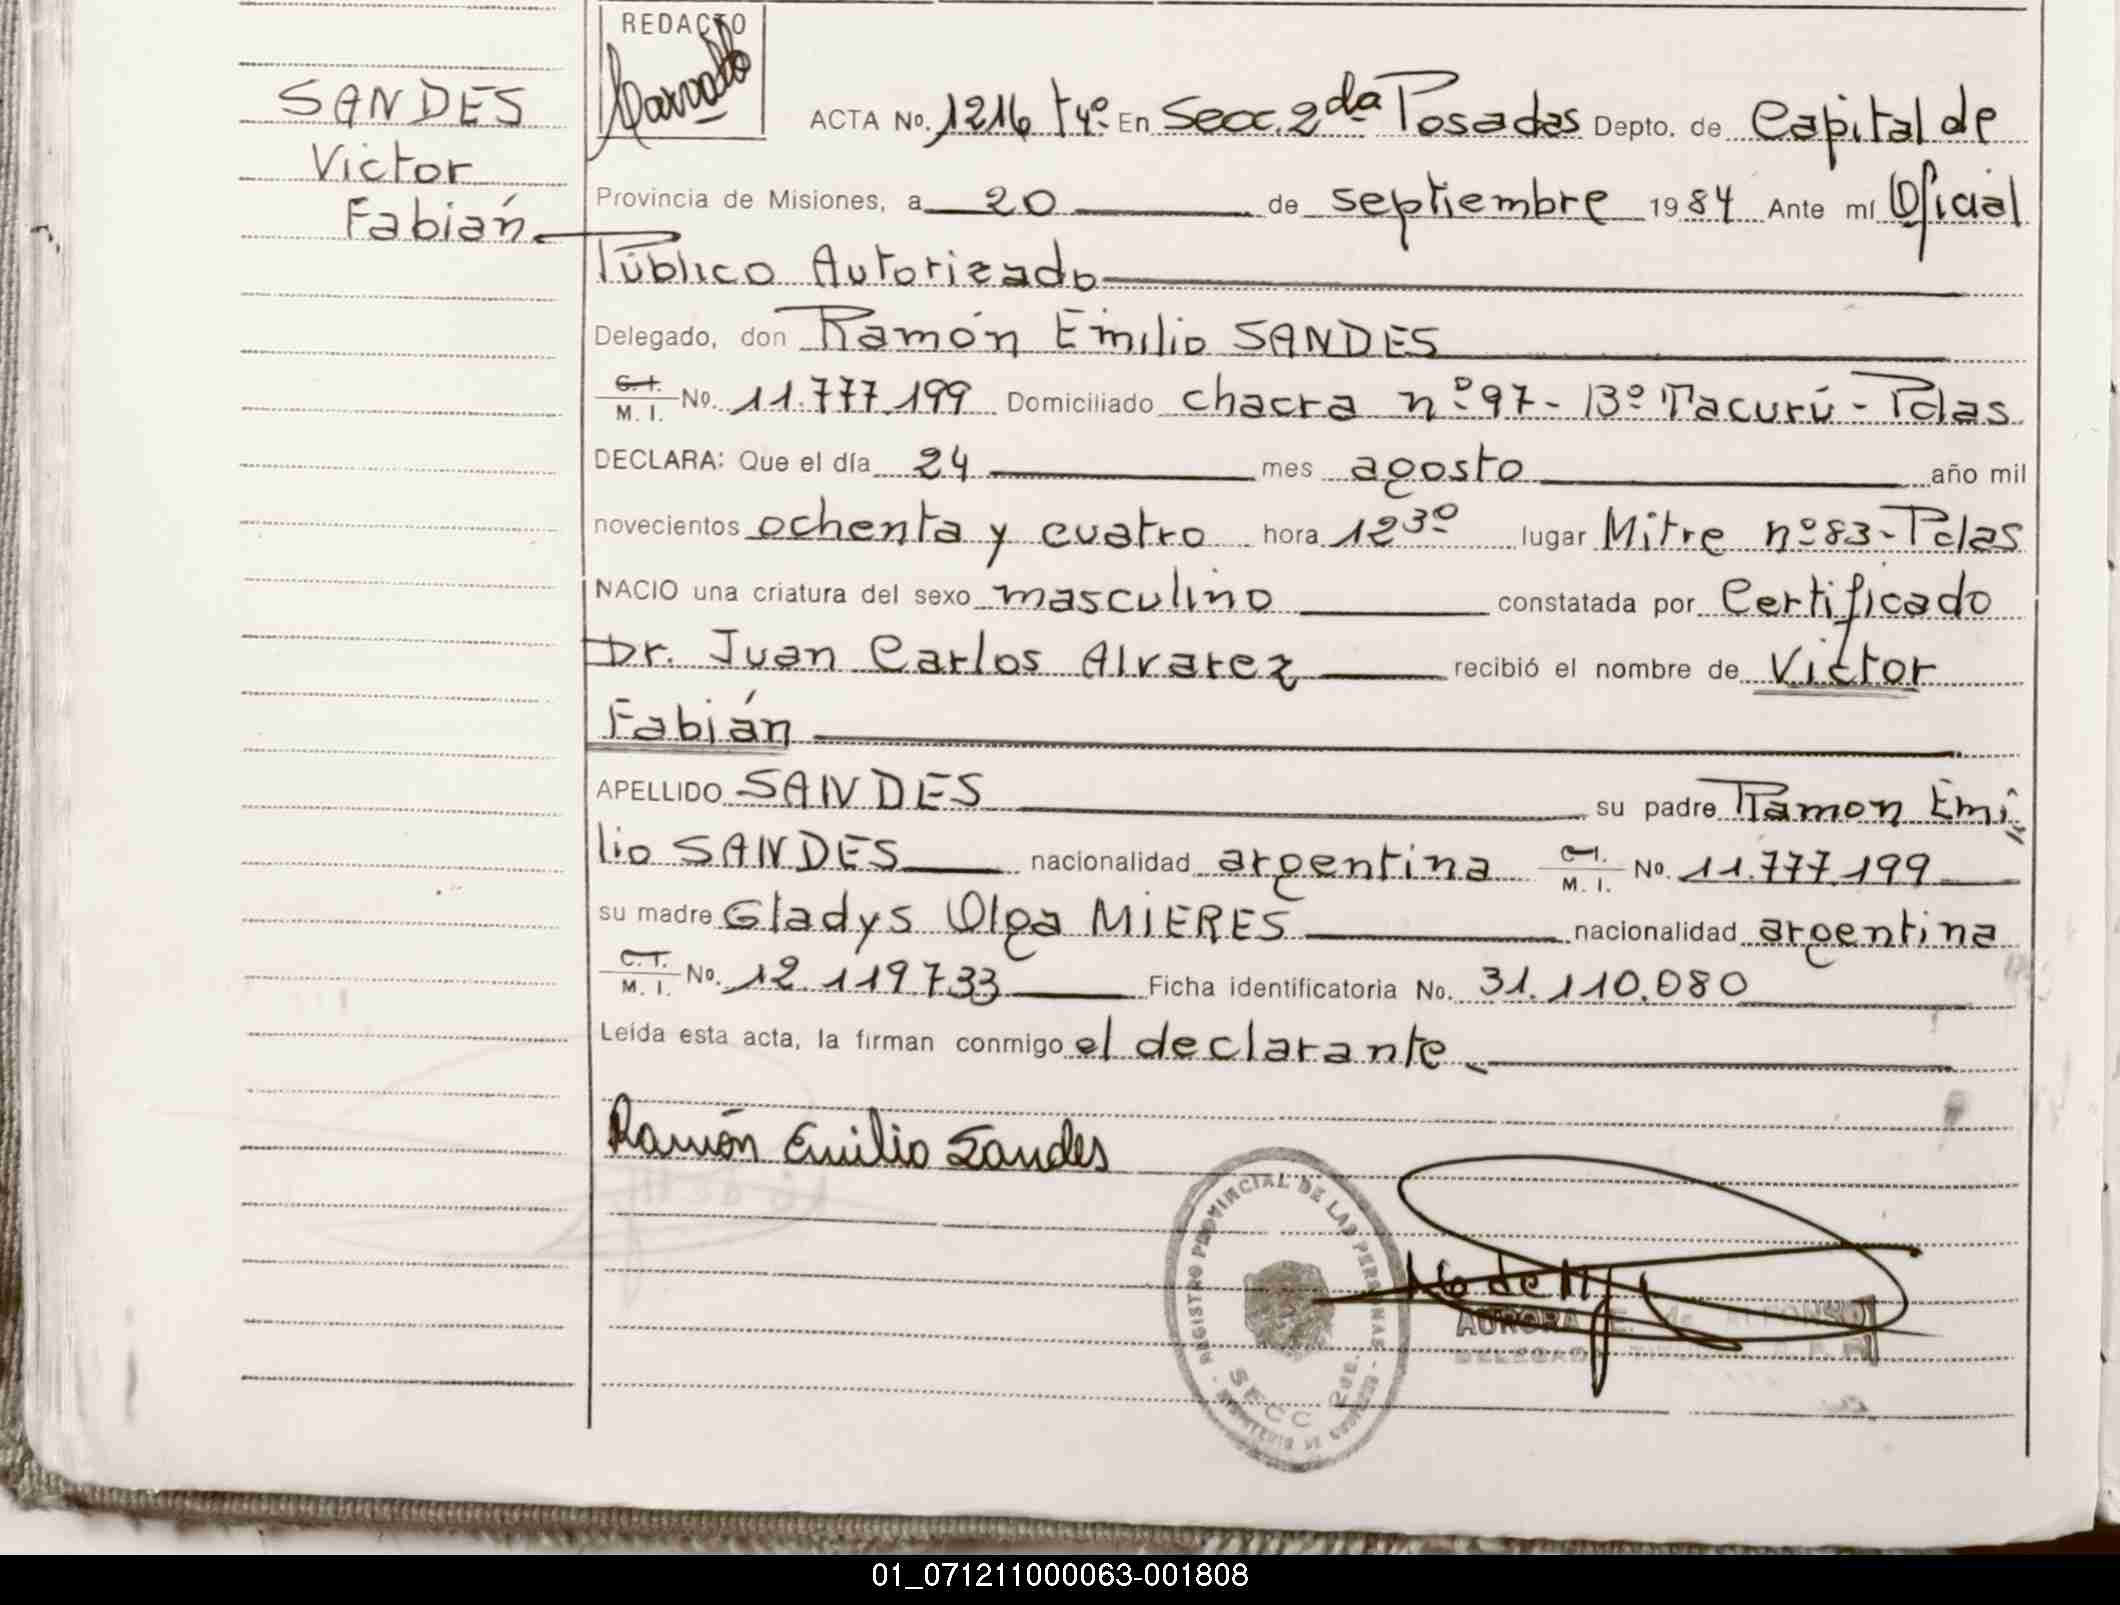 REDACTO
SANDES
Victor
Fabián
ACTA No. 1216 tº4º En Secc. 2da Posadas Depto. de Capital de
Provincia de Misiones, a 20 de septiembre 1984 Ante mí Oficial
Público Autorizado
Delegado, don Ramón Emilio SANDES
C.I. M.I. No. 11.777.199 Domiciliado chacra nº 97 - Bº Tacurú - Pdas
DECLARA: Que el día 24 mes agosto año mil
novecientos ochenta y cuatro hora 12 30 lugar Mitre nº 83 - Pdas
NACIO una criatura del sexo masculino constatada por Certificado
Dr. Juan Carlos Alvarez recibió el nombre de Victor
Fabián
APELLIDO SANDES su padre Ramon Emi
lio SANDES nacionalidad argentina C.I. M.I. No. 11.777.199
su madre Gladys Olga MIERES nacionalidad argentina
C.I. M.I. No. 12.119.733 Ficha identificatoria No. 31.110.080
Leída esta acta, la firman conmigo el declarante
Ramón Emilio Sandes
REGISTRO PROVINCIAL DE LAS PERSONAS
SECC 2da.
MINISTERIO DE GOBIERNO
AURORA E. de ALFONSO
01_071211000063-001808